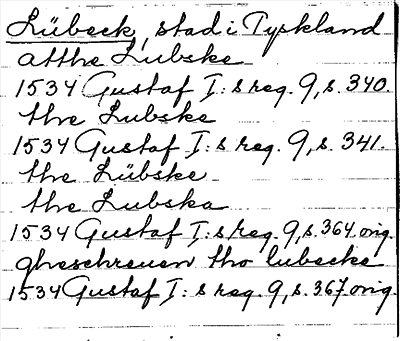 Lübeck, stad i Tyskland
atthe Lubske
1534 Gustaf I:s reg. 9, s. 340.
the Lubske
1534 Gustaf I:s reg. 9, s. 341.
the Lübske
the Lubska
1534 Gustaf I:s reg. 9, s. 364. orig.
gheschreuen tho lubecke
1534 Gustaf I:s reg. 9, s. 367. orig.